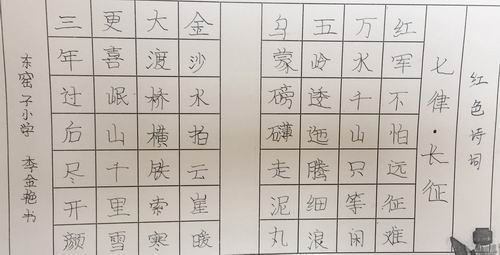 红色诗词
七律·长征
红军不怕远征难
万水千山只等闲
五岭透迤腾细浪
乌蒙磅礴走泥丸
金沙水拍云崖暖
大渡桥横铁索寒
更喜岷山千里雪
三年过后尽开颜
东窑子小学 李金艳书